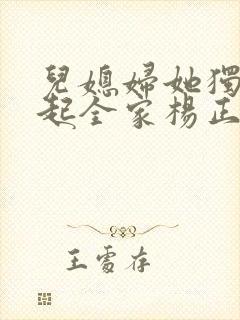 兒媳婦她獨
起全家楊正
王雪存